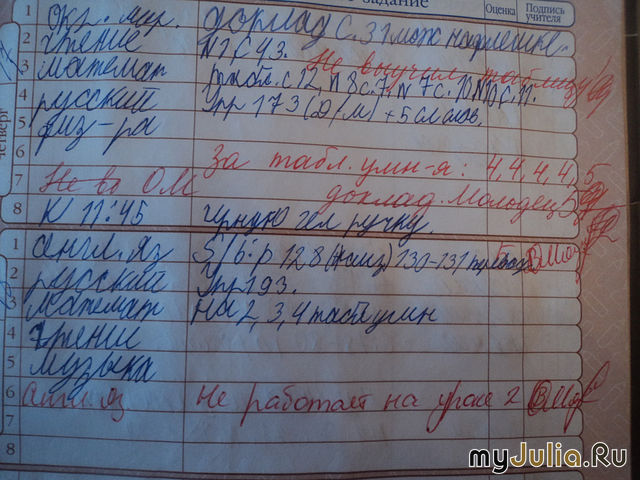 задание Оценка Подпись учителя
четверг
1 Окр. мир. доклад с. 31 можн на флешке
2 чтение N1 с 43.
3 математ Не выучил таблицу
р табл. с 12, N 8 с. 7, N 7 с. 10 N10 с. 11.
4 русский Упр 173 (д/м) + 5 сл слов.
5 физ-ра
6 За табл. умн-я: 4, 4, 4, 4, 5
7 Не во ОМ доклад. Молодец 5
8 К 11:45 чёрную гел ручку.
1 англ. яз S/b: p 128 (наиз) 130-131
2 русский Упр 193.
3 математ На 2, 3, 4 табл умн
4 чтение
5 музыка
6 Англ. яз Не работает на уроке 2
7
8
myJulia.Ru